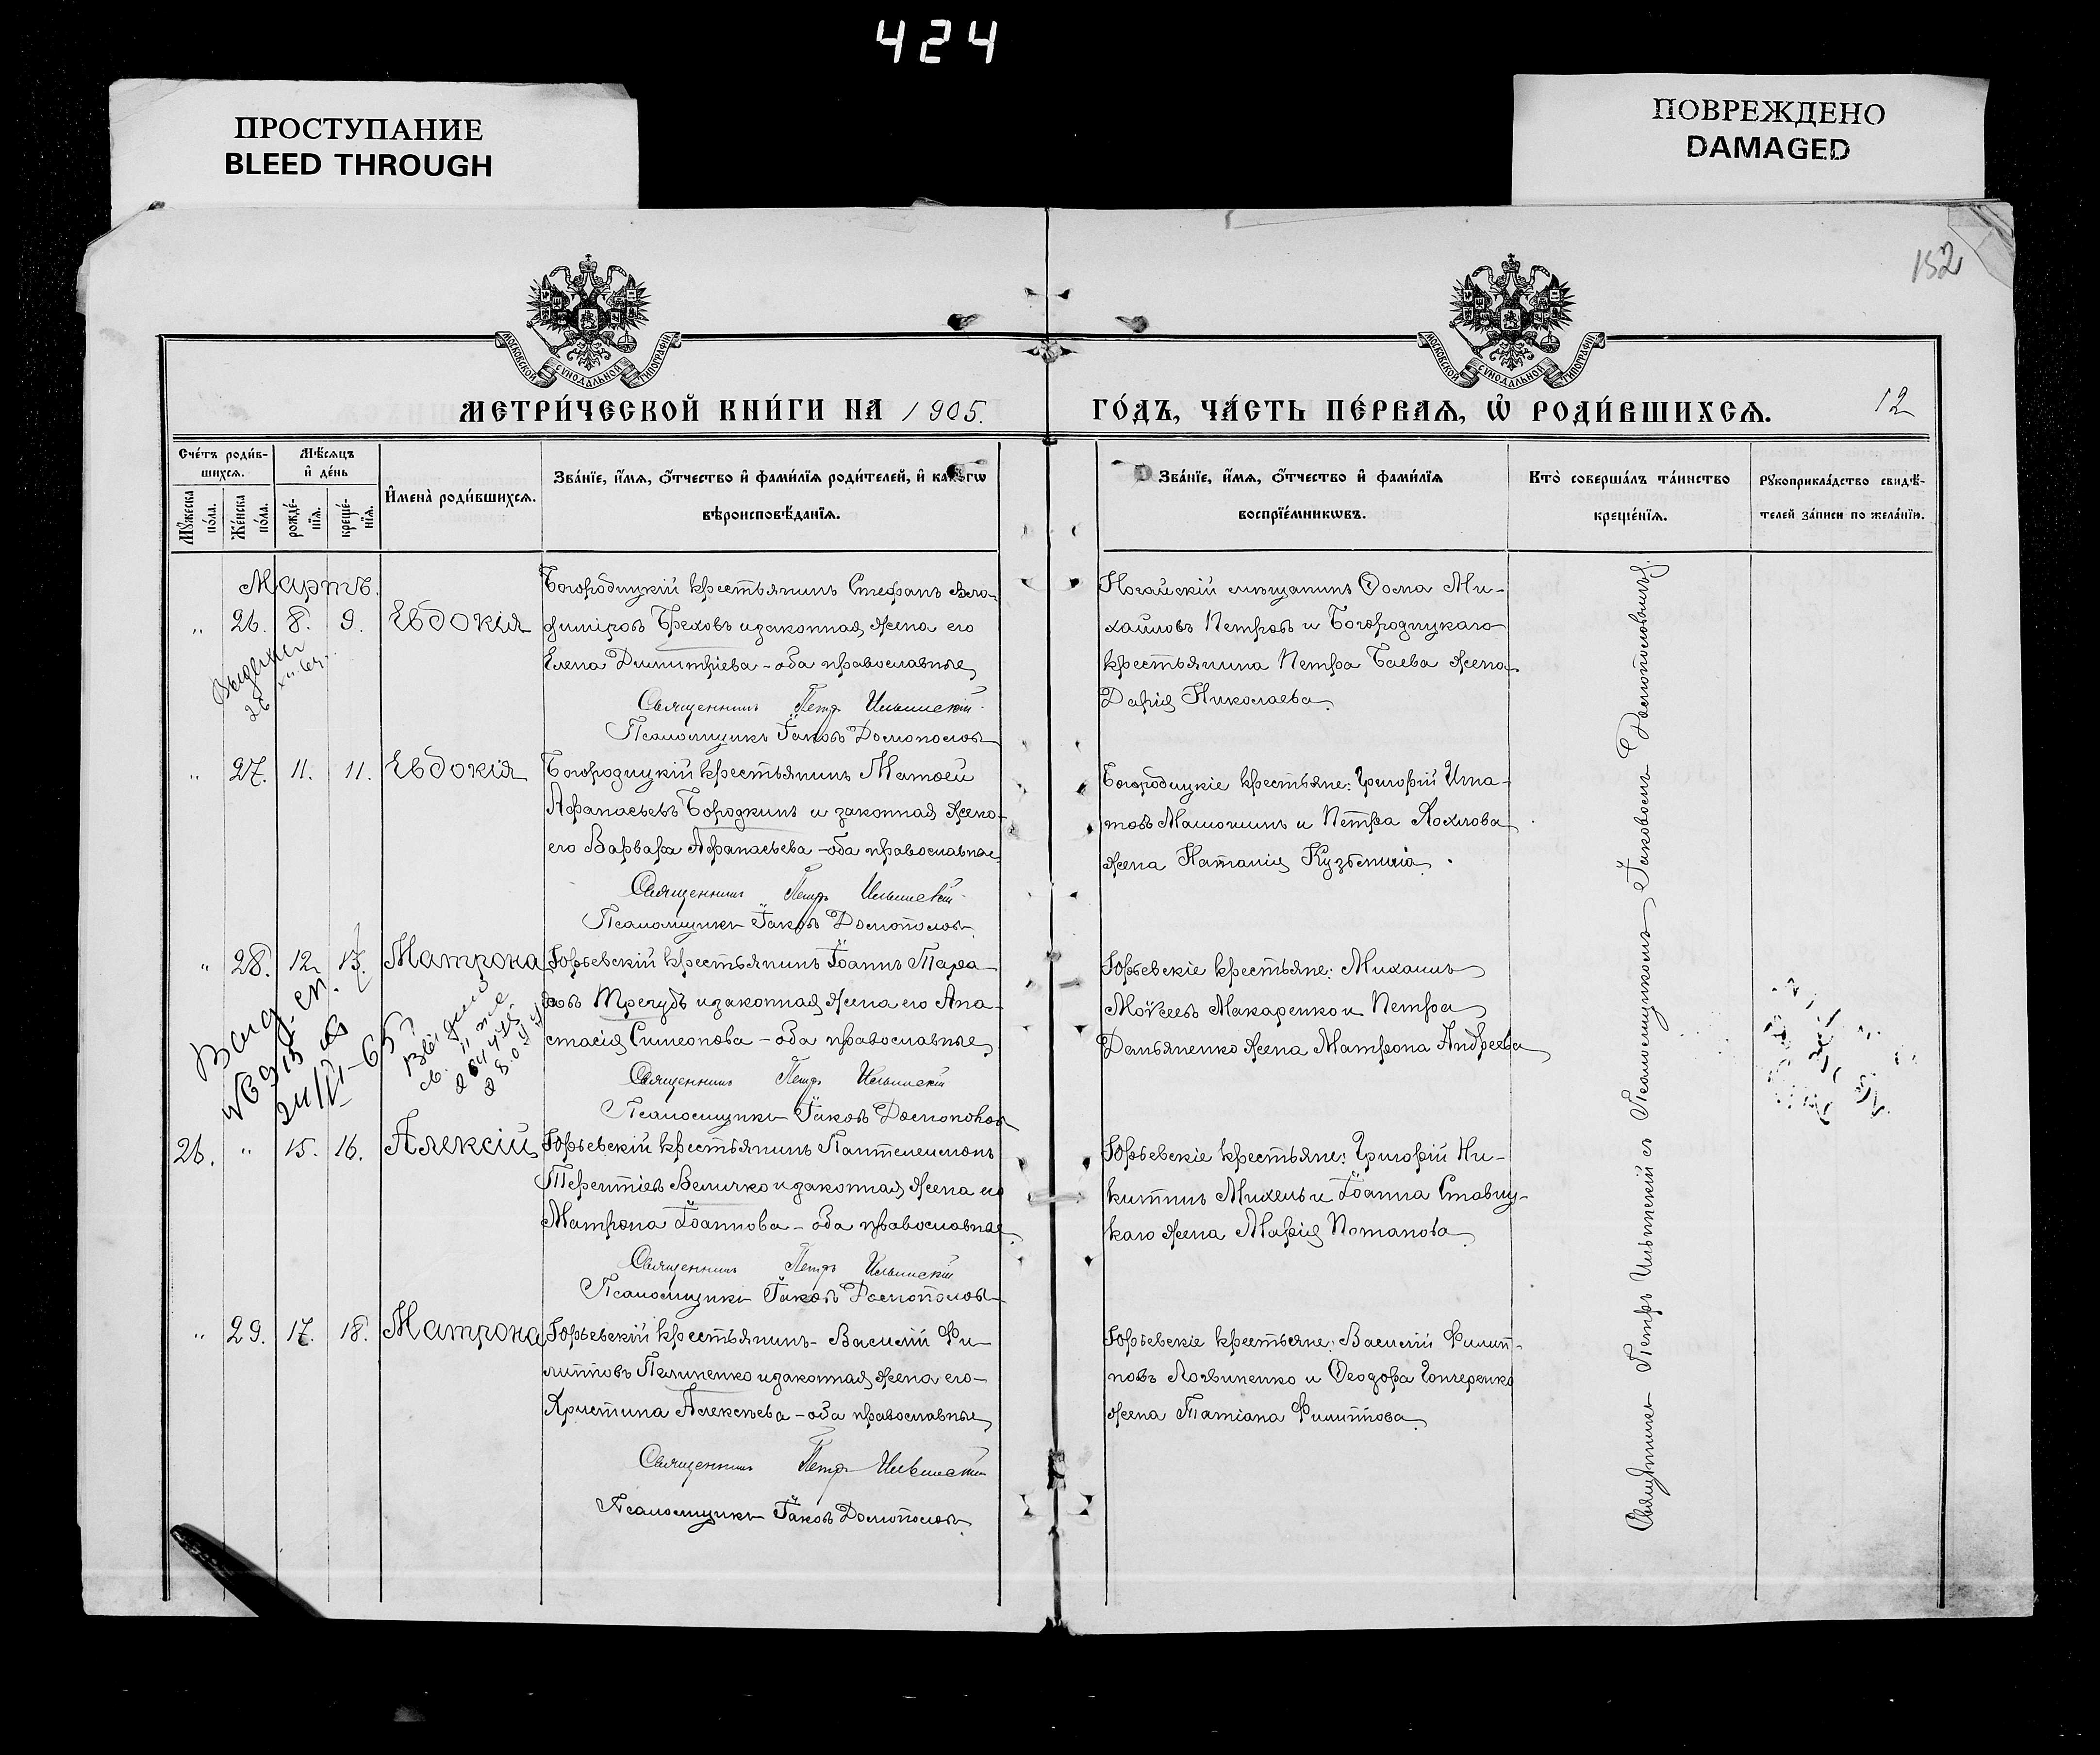 424
ПРОСТУПАНИЕ
BLEED THROUGH
ПОВРЕЖДЕНО
DAMAGED
152
МОСКОВСКОЙ СѴНОДАЛЬНОЙ ТИПОГРАФІИ
МОСКОВСКОЙ СѴНОДАЛЬНОЙ ТИПОГРАФІИ
МЕТРИ́ЧЕСКОЙ КНИ́ГИ НА 1905.
ГО́ДЪ, ЧА́СТЬ ПЕ́РВАѦ, Ѡ҆ РОДИ́ВШИХСѦ.
12
Сче́тъ роди́в-
шихсѧ.
Мꙋ́жеска по́ла.
Же́нска по́ла.
Мѣ́сѧцъ
и҆ де́нь
рожде́-
нїѧ.
креще́-
нїѧ.
И҆мена̀ роди́вшихсѧ.
Зва́нїе, и҆́мѧ, ѻ҆́тчество и҆ фами́лїѧ роди́телей, и҆ како́гѡ
вѣроисповѣ́данїѧ.
Зва́нїе, и҆́мѧ, ѻ҆́тчество и҆ фами́лїѧ
воспрїе́мникѡвъ.
Кто̀ соверша́лъ та́инство
креще́нїѧ.
Рꙋкоприкла́дство свидѣ́-
телей за́писи по жела́нїю.
Мартъ.
" 26. 8. 9. Евдокія
Богородицкій крестьянинъ Стефанъ
Бреховъ и законная жена его
Елена Димитріева - оба православные
Священникъ Петр Ильинскій
Псаломщикъ Іаковъ
Ногайскій мѣщанинъ Ѳома Ми-
хаиловъ Петровъ и Богородицкаго
крестьянина Петра Баева жена
Дарія Николаева
" 27. 11. 11. Евдокія
Богородицкій крестьянинъ Матѳей
Аѳанасьевъ Бородкинъ и законная жена
его Варвара Аѳанасьева - оба православные
Священникъ Петръ Ильинскій
Псаломщикъ Іаковъ
Богородицкіе крестьяне: Григорій Игна-
товъ и Петра Хохлова
жена Наталія Кузьмина
" 28. 12. 13. Матрона
Юрьевскій крестьянинъ Іоаннъ Тара-
совъ Трегубъ и законная жена его Ана-
стасія Симеонова - оба православные
Священникъ Петръ Ильинскій
Псаломщикъ Іаковъ
Юрьевскіе крестьяне: Михаилъ
Моѵсеевъ Макаренко и Петра
Демьяненко жена Матрона Андреева
26. " 15. 16. Алексій
Юрьевскій крестьянинъ Пантелеимонъ
Терентіевъ Величко и законная жена его
Матрона Іоаннова - оба православные
Священникъ Петръ Ильинскій
Псаломщикъ Іаковъ
Юрьевскіе крестьяне: Григорій Ни-
китинъ Михель и Іоанна Ставиц-
каго жена Марія Потапова
" 29. 17. 18. Матрона
Юрьевскій крестьянинъ Василій Фи-
липповъ Пелипенко и законная жена его
Христина Алексѣева - оба православные
Священникъ Петръ Ильинскій
Псаломщикъ Іаковъ
Юрьевскіе крестьяне: Василій Филип-
повъ Логвиненко и Ѳеодора Гончеренко
жена Татіана Филиппова
Священникъ Петръ Ильинскій съ Псаломщикомъ Іаковомъ